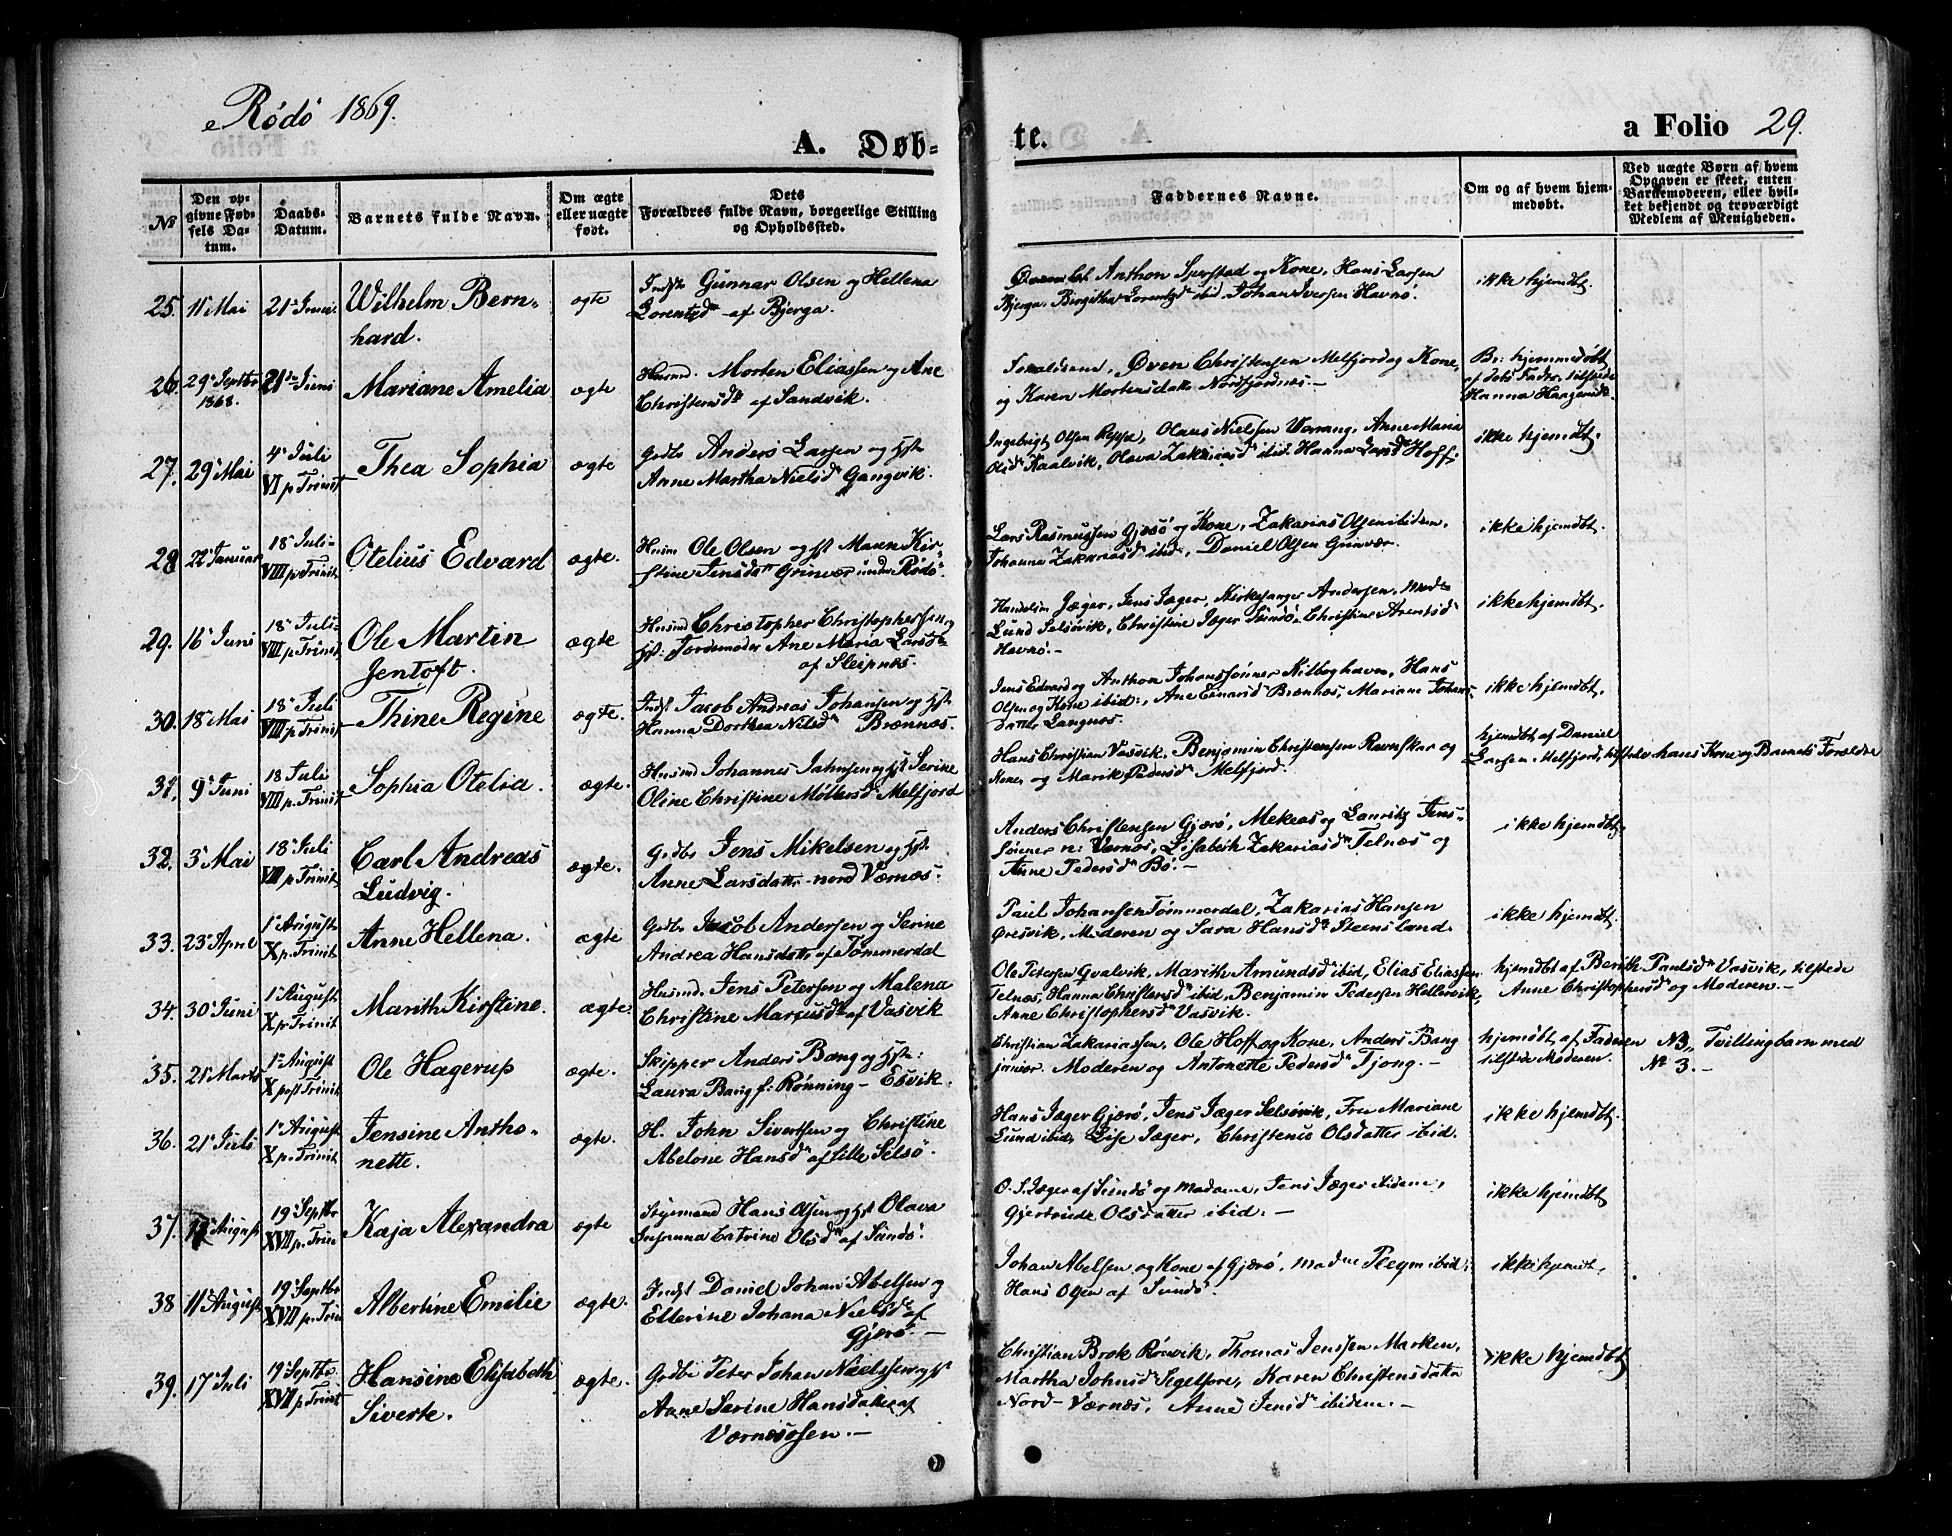 Rödö 1869.
A. Døb-
te.
a Folio 29.
№
Den op-
givne Fød-
sels Da-
tum.
Daabs-
Datum.
Barnets fulde Navn.
Om ægte
eller uægte
født.
Dets
Forældres fulde Navn, borgerlige Stilling
og Opholdssted.
Faddernes Navne.
Om og af hvem hjem-
medøbt.
Ved uægte Børn af hvem
Opgaven er skeet, enten
Barnemoderen, eller hvil-
ket bekjendt og troværdigt
Medlem af Menigheden.
25. 11 Mai 21 Juni. Wilhelm Bern-
hard.
ægte
Indst Gunnar Olsen og Hellena
Lorentsdr af Bjerga.
Anthon Sperstad og Kone, Hans Larsen
Bjerga, Birgitha Lorentsdr ibid. Johan Iversen Havnö.
ikke hjemdbt.
26. 29 Septbr
1868.
21 Juni Mariane Amelia ægte
Husmd. Morten Eliassen og Ane
Christensdtr af Sandvik.
Forældrene, Öven Christensen Melfjord og Kone,
og Karen Mortensdatter Nordfjordnæs.
Br: hjemmedöbt
af dets Fader, tilstede
Hanna Haagensdr.
27. 29 Mai 4 Juli
VI p. Trinit
Thea Sophia ægte
Gdbr Anders Larsen og Hst
Anne Martha Nielsdr Gangvik.
Ingebrigt Olsen Reppe, Olaus Nielsen Værang, Anne Maria
Olsdr Kaalvik, Olava Zakariasdr ibid. Hanna Larsdr Hoff.
ikke hjemdbt.
28 22 Januar 18 Juli
VIII p. Trinit.
Otelius Edvard ægte.
Husm Ole Olsen og Hst Maren Kir-
stine Jensdatr Grinvær under Rödö.
Lars Rasmussen Gjæsö og Kone, Zakarias Olsen ibidem,
Johanna Zakariasdr ibid, Daniel Olsen Grinvær.
ikke hjemdbt.
29. 16 Juni 18 Juli
VIII p. Trinit.
Ole Martin
Jentoft.
ægte
Husmd Christopher Christophersen og
Hst: Jordemoder Ane Maria Larsdr
af Sleipnæs.
Handelsm Jæger, Jens Jæger, Kirkesanger Andersen, Mad-
Lund Selsövik, Christine Jæger Sundö, Christine Arentsdr
Havnö.
ikke hjemdbt.
30. 18 Mai 18 Juli
VIII p. Trinit
Thine Regine ægte.
Indst Jacob Andreas Johansen og Hst
Hanna Dorthea Nilsdr Brænnæs.
Jens Edvard og Anthon Johanssönner Kilboghavn, Hans
Olsen og Kone ibid:, Ane Edvardsdr Brænnæs, Mariane Johans-
datter Langnæs.
ikke hjemdbt.
31. 9 Juni 18 Juli
VIII p. Trinit
Sophia Otelia. ægte.
Husmd Johannes Jahnsen og Hst Serine
Oline Christine Möllersdr Melfjord
Hans Christian Vasvik, Benjamin Christensen Ravnskar og
Kone, og Marik Pedersdr Melfjord.
hjemdbt af Daniel
Larsen Melfjord, tilstede hans Kone og Barnets Forældre
32. 3 Mai 18 Juli
VIII p. Trinit.
Carl Andreas
Ludvig.
ægte.
Gdbr Jens Mikelsen og Hst.
Anne Larsdattr nord Værnæs.
Anders Christensen Gjærö, Mekias og Lauritz Jens-
sönner n: Værnæs, Lisabeth Zakariasdr Telnæs og
Anne Pedersdr Bö.
ikke hjemdbt.
33. 23 April 1 August
X p. Trinit.
Anne Hellena. ægte
Gdbr Jacob Andersen og Serine
Andrea Hansdattr af Tömmerdal
Paul Johansen Tömmerdal, Zakarias Hansen
Gresvik, Moderen og Sara Hansdr Steensland.
ikke hjemdbt.
34. 30 Juni 1 August
X p. Trinit.
Marith Kirstine. ægte.
Husmd. Jens Petersen og Malena
Christine Marcusdr af Vasvik
Ole Petersen Qvalvik, Marith Amundsdr ibid, Elias Eliassen
Telnæs, Hanna Christensdr ibid, Benjamin Pedersen Hellervik,
Anne Christophersdr Vasvik.
hjemdbt af Berith Paulsdr Vasvik, tilstede
Anne Christophersdr og Moderen.
35. 21 Marts 1 August
X post Trinit.
Ole Hagerup ægte.
Skipper Anders Bang og Hst:
Laura Bang f: Rönning - Esvik.
Christian Zakariassen, Ole Hoff og Kone, Anders Bang
junior. Moderen og Antonette Pedersdr Tjong.
hjemdbt af Faderen
tilstede Moderen.
NB. Tvillingbarn med
№ 3.
36. 21 Juli 1 August
X p. Trinit.
Jensine Antho-
nette.
ægte.
H. John Sivertsen og Christine
Abelone Hansdr af Lille Selsö.
Hans Jæger Gjærö, Jens Jæger Selsövik, Fru Mariane
Lund ibid, Lise Jæger, Christense Olsdatter ibid.
ikke hjemdbt.
37. August 19 Septbr
XVII p. Trin
Kaja Alexandra ægte
Styrmand Hans Olsen og Hst Olava
Susanna Catrine Olsdr af Sundö.
O. S. Jæger af Sundö og Madame, Jens Jæger ibidem,
Gjertrude Olsdatter ibid.
ikke hjemdbt
38 11 August 19 Septbr
XVII p. Trin
Albertine Emilie ægte.
Indst Daniel Johan Abelsen og
Ellerine Johana Nielsdr af
Gjærö.
Johan Abelsen og Kone af Gjærö, Madme Pleym ibid,
Hans Olsen af Sundö.
ikke hjemdbt.
39. 17 Juli 19 Septbr
XVII p. Trinit
Hansine Elisabeth
Siverte.
ægte.
Gdbr Peter Johan Nielssen og Hst
Anne Serine Hansdatter af
Værnæsosen.
Christian Brok Rönvik, Thomas Jenssen Marken,
Martha Johnsdr Segelfore, Karen Christensdatter
Nord-Værnæs, Anne Jensdr ibidem.
ikke hjemdbt